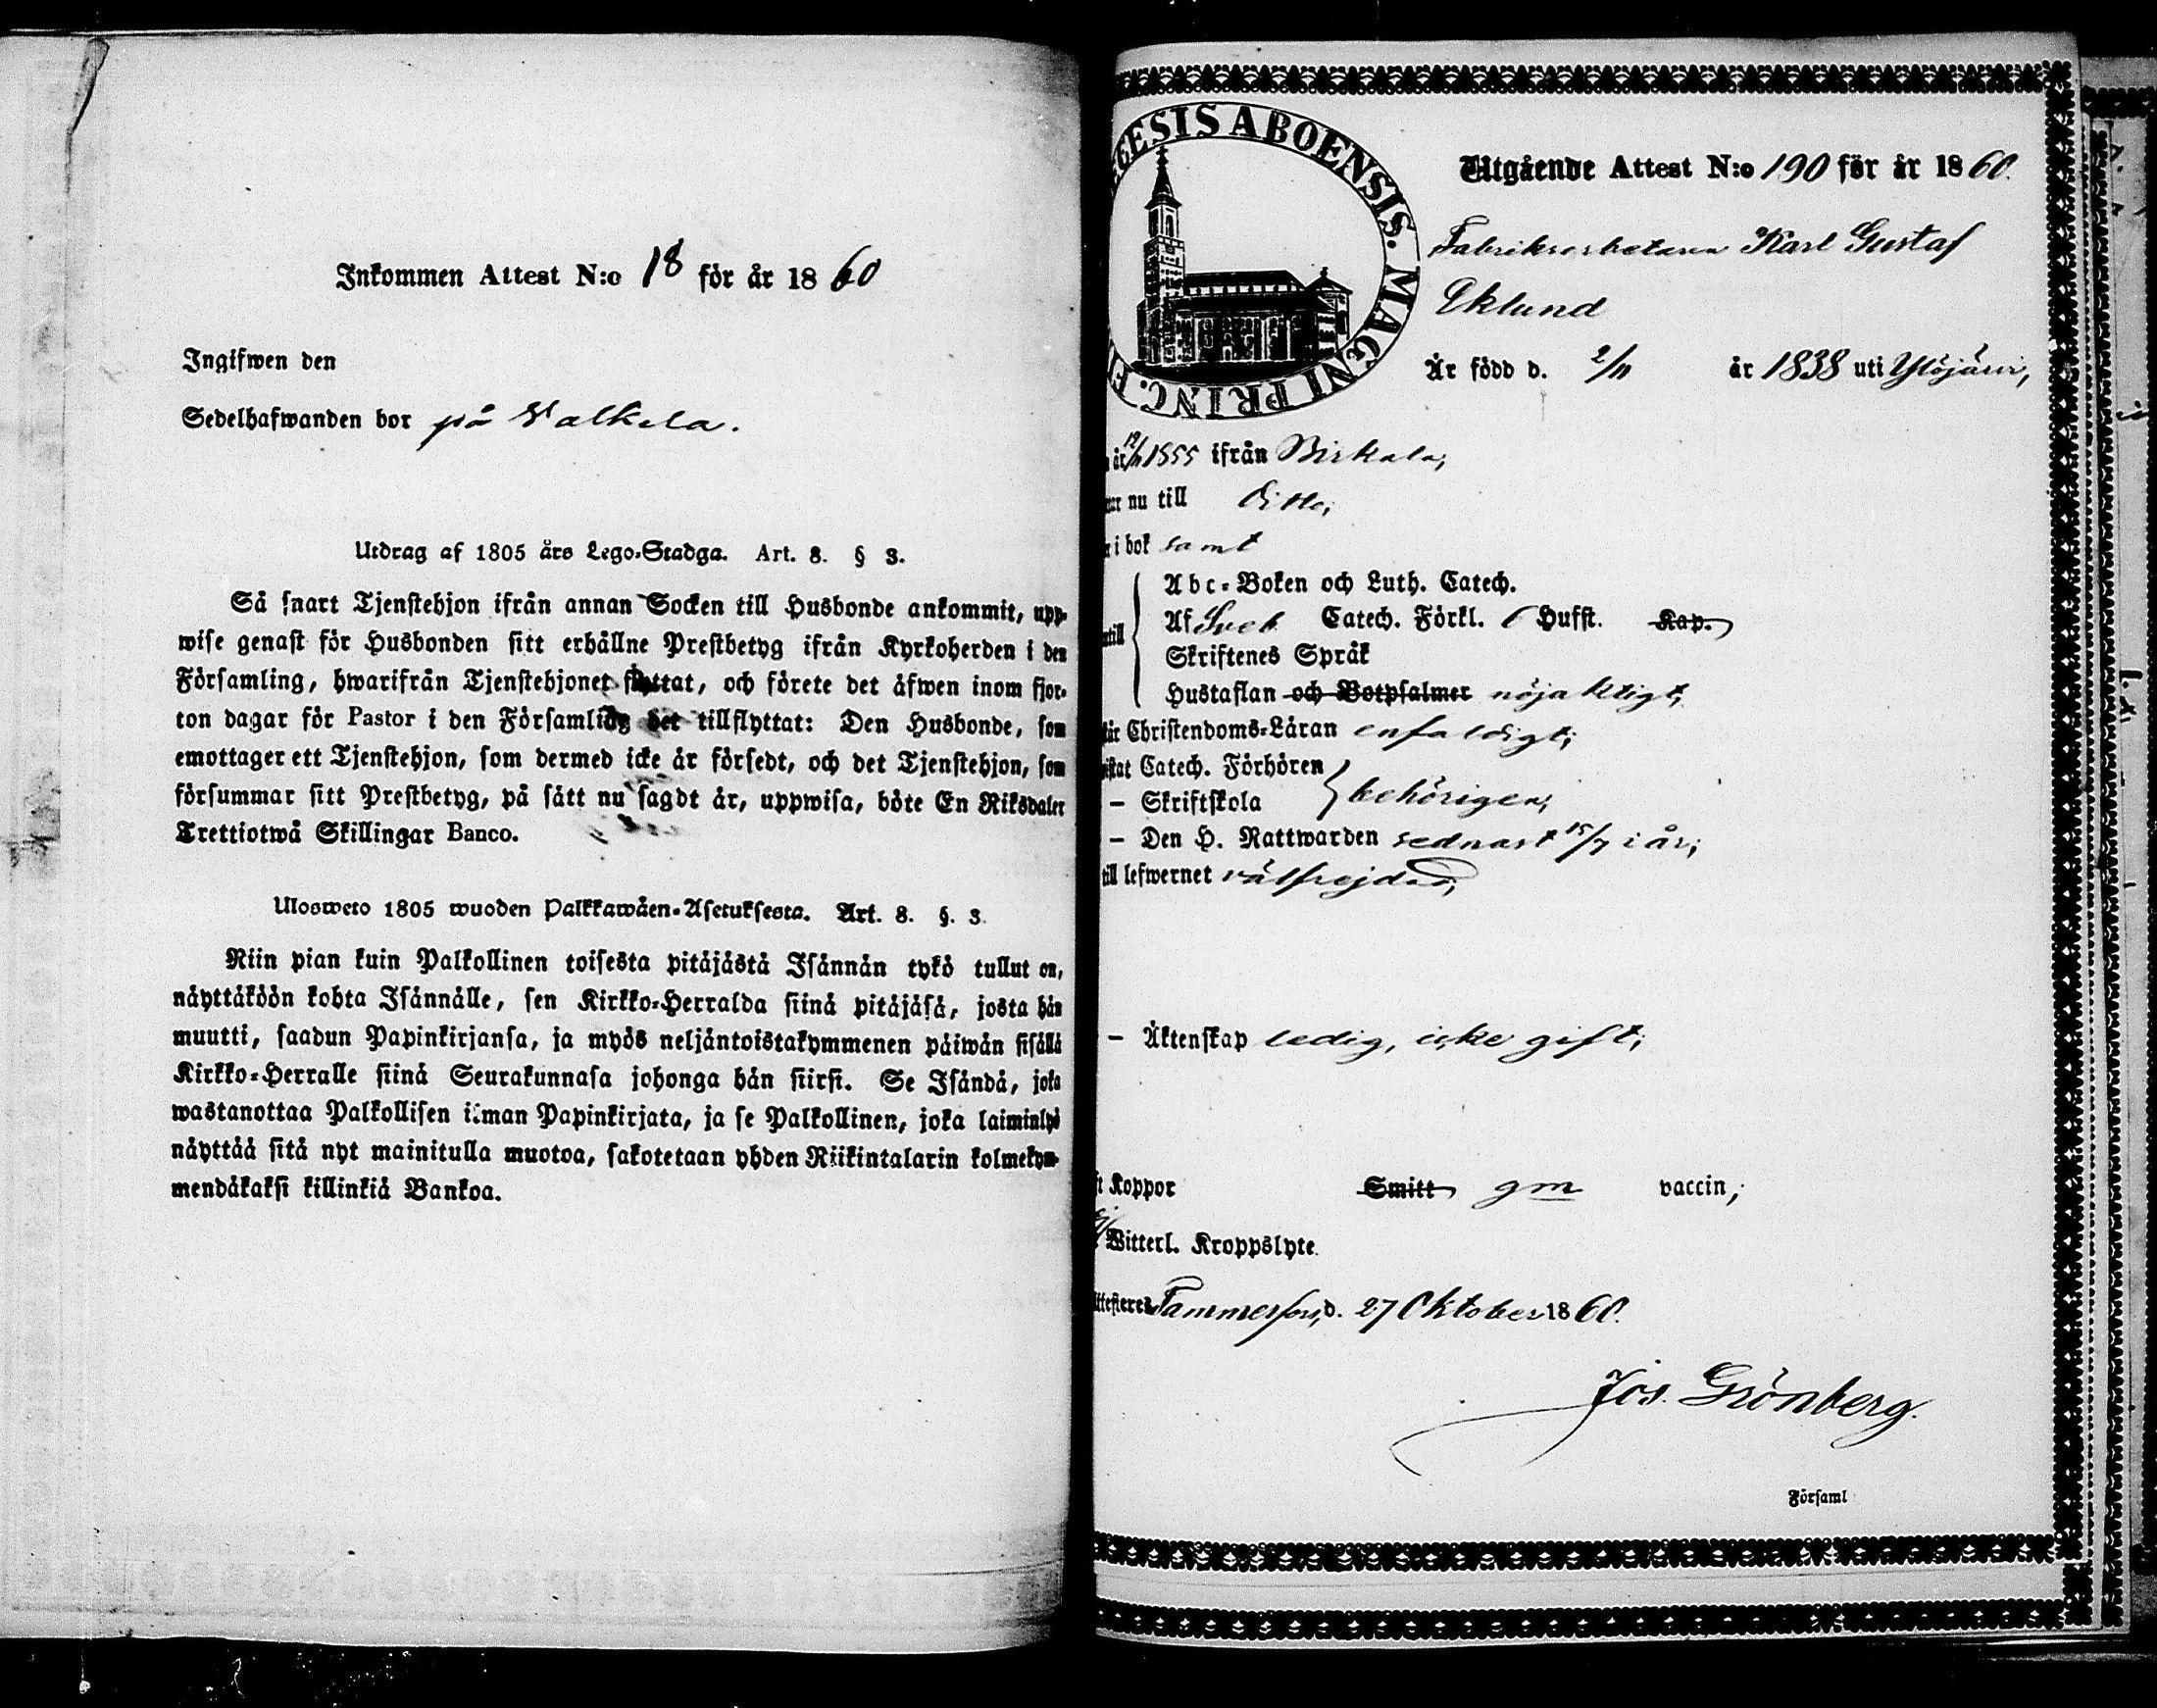 Inkommen Attest N:o 18 för år 1860
Ingifwen den
Sedelhafwanden bor på Walkila.
Utdrag af 1805 års Lego-Stadga. Art. 8. § 3.
Så snart Tjenstehjon ifrån annan Socken till Husbonde ankommit, upp-
wise genast för Husbonden sitt erhållne Prestbetyg ifrån Kyrkoherden i den
Församling, hwarifrån Tjenstehjonet flyttat, och förete det äfwen inom fjor-
ton dagar för Pastor i den Församling det tillflyttat: Den Husbonde, som
emottager ett Tjenstehjon, som dermed icke är försedt, och det Tjenstehjon, som
försummar sitt Prestbetyg, på sätt nu sagdt är, uppwisa, böte En Riksdaler
Trettiotwå Skillingar Banco.
Ulosweto 1805 wuoden Palkkawäen-Asetuksesta. Art. 8. §. 3.
Niin pian kuin Palkollinen toisesta pitäjästä Isännän tykö tullut on,
näyttäköön kohta Isännälle, sen Kirkko-Herralda siinä pitäjäsä, josta hän
muutti, saadun Papinkirjansa, ja myös neljäntoistakymmenen päiwän sisällä
Kirkko-Herralle siinä Seurakunnasa johonga hän siirsi. Se Isändä, joka
wastanottaa Palkollisen ilman Papinkirjata, ja se Palkollinen, joka laiminlyö
näyttää sitä nyt mainitulla muotoa, sakotetaan yhden Riikintalarin kolmekym-
mendäkaksi killinkiä Bankoa.
ESIS ABOENSIS. MAGNI PRINC. F
Utgående Attest N:o 190 för år 1860.
Fabriksarbetaren Karl Gustaf
Eklund
Är född d. 2/11 år 1838 uti Ylöjärvi,
år 12/11 1855 ifrån Birkala;
nu till ditto;
i bok samt
Abc-Boken och Luth. Catech.
Af Sveb. Catech. Förkl. 6 Hufst. Kap.
till
Skriftenes Språk
Hustaflan och Botpsalmer nöjaktigt;
Christendoms-Läran enfaldigt;
Catech. Förhören
– Skriftskola behörigen;
– Den H. Nattwarden sednast 15/7 i år;
till lefwernet välfrejdad;
– Äktenskap ledig, icke gift;
Koppor Smitt gm vaccin;
Witterl. Kroppslyte.
Attesteres Tammerfors, d. 27 Oktober 1860.
Jos. Grönberg.
Församl